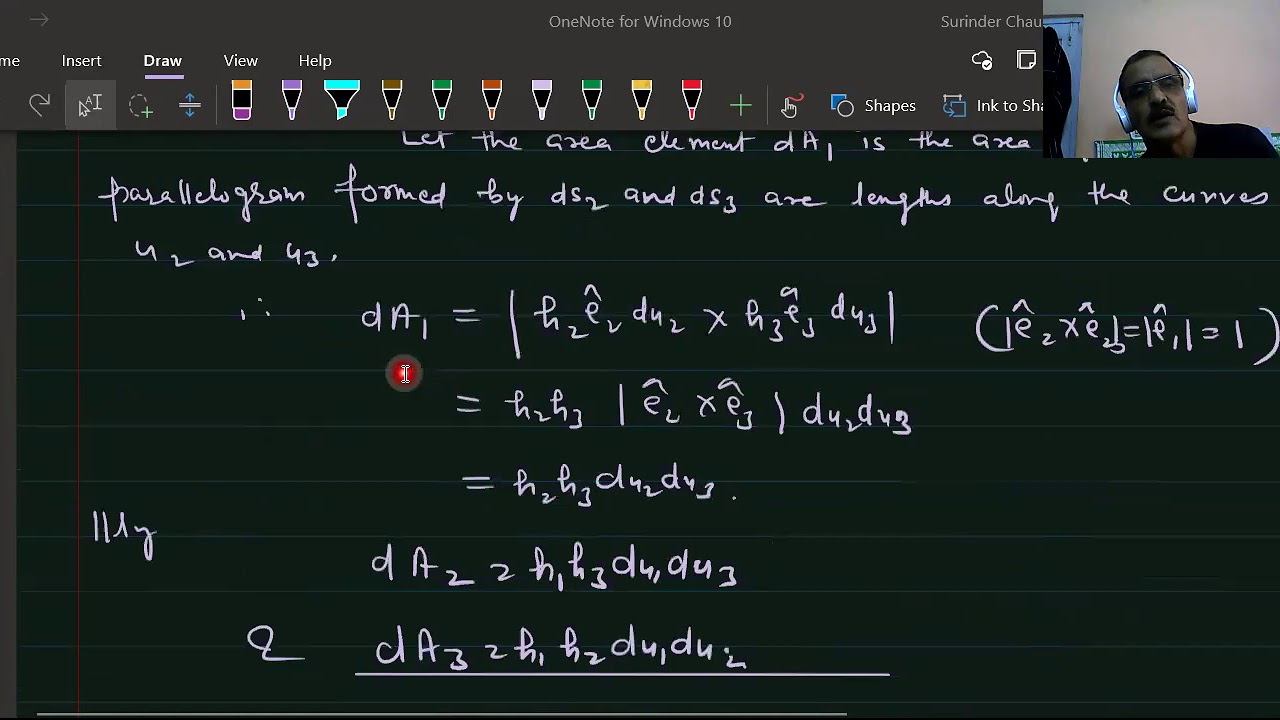 OneNote for Windows 10
Surinder Chau
me Insert Draw View Help
Shapes
Ink to Sha
Let the area element dA₁ is the area
parallelogram formed by ds₂ and ds₃ are lengths along the curves
u₂ and u₃.
∴ dA₁ = | h₂ê₂ du₂ × h₃ê₃ du₃ | (|ê₂ × ê₃| = |ê₁| = 1)
= h₂h₃ | ê₂ × ê₃ | du₂du₃
= h₂h₃ du₂du₃.
||ly
dA₂ = h₁h₃ du₁du₃
& dA₃ = h₁h₂ du₁du₂